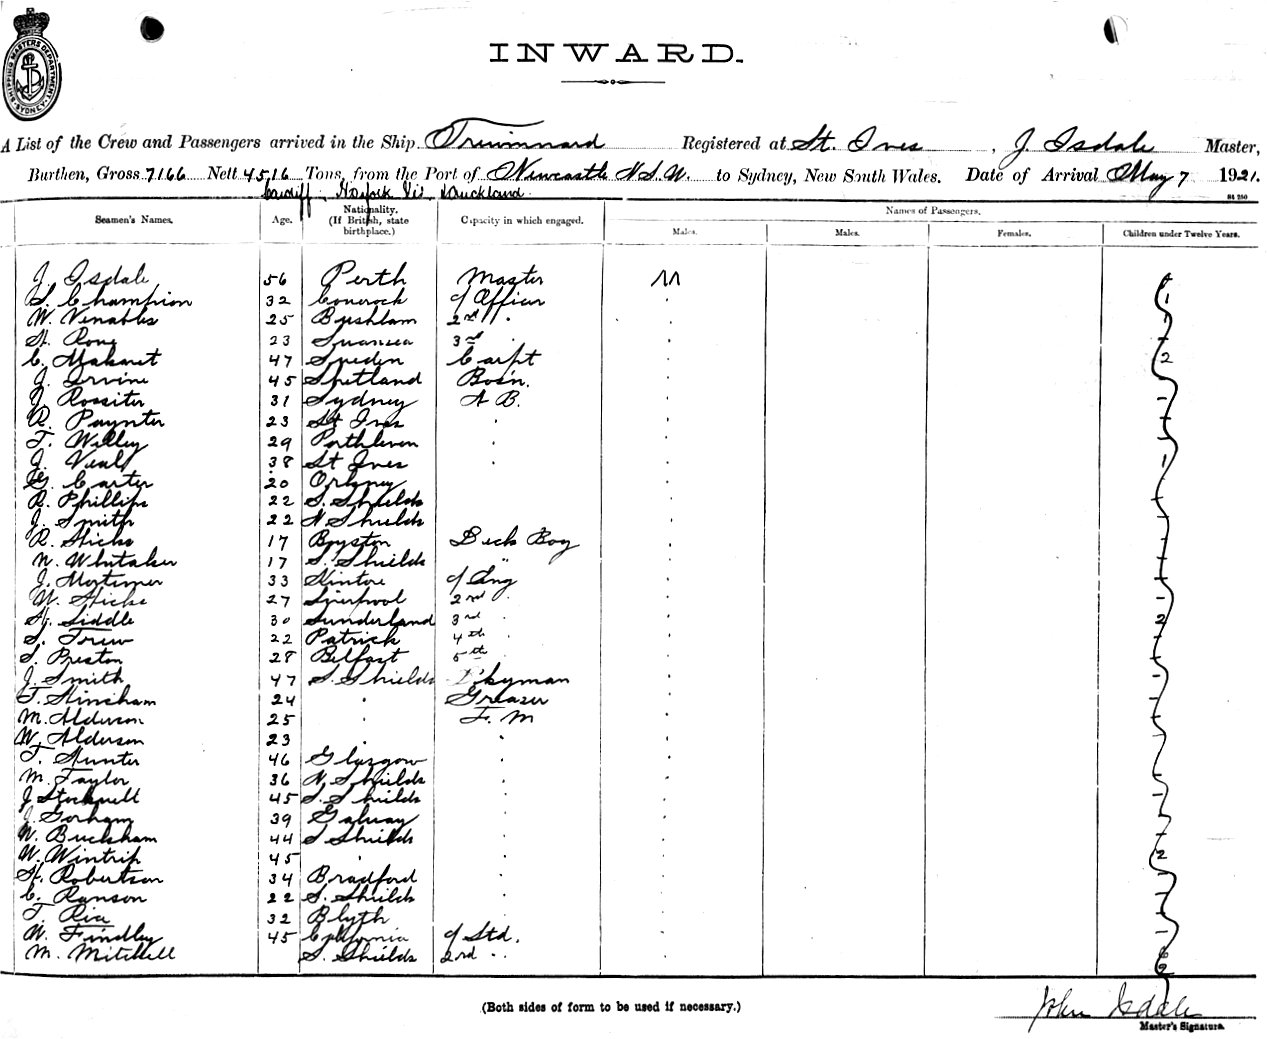 SHIPPING MASTERS DEPARTMENT SYDNEY
INWARD.
A List of the Crew and Passengers arrived in the Ship Registered at St. Ives, J. Isdale Master,
Burthen, Gross 7166 Nett 4516 Tons, from the Port of Newcastle N.S.W. to Sydney, New South Wales. Date of Arrival May 7 1921.
Cardiff Norfolk Via Auckland
Seamen's Names. Age. Nationality. (If British, state birthplace.) Capacity in which engaged. Names of Passengers.
Males. Males. Females. Children under Twelve Years.
J. Isdale 56 Perth Master
S. Champion 32 c/ Officer
W. Venables 25 2nd
23 Swansea 3rd
C. 47 Sweden Carpt
J. Irvine 45 Shetland Bosn.
J. Rossiter 31 Sydney A B.
R. Paynter 23 St Ives
T. Willey 29 Porthleven
J. Veal 38 St Ives
G. Carter 20 Orkney
R. Phillips 22 S. Shields
J. Smith 22 N Shields
R. Hicks 17 Deck Boy
N. Whitaker 17 S. Shields "
J. Mortimer 33 Kintore c/ Eng
W. Hicks 27 Liverpool 2nd
H. Siddle 30 Sunderland 3rd
S. Trew 22 Patrick 4th
S. Preston 28 Belfast 5th
J. Smith 47 S. Shields Dkyman
T. Hincham 24 Greaser
M. Alderson 25 F. M
W. Alderson 23
T. Hunter 46 Glasgow
M. Taylor 36 N. Shields
J 45 S. Shields
J. Gorham 39 Galway
W. Bucksham 44 S Shields
W. Wintrip 45
H. Robertson 34 Bradford
C. Ranson 22 S. Shields
T. 32 Blyth
W. Findley 45 California c/ Std.
M. Mitchell S. Shields 2nd
(Both sides of form to be used if necessary.)
John Isdale
Master's Signature.